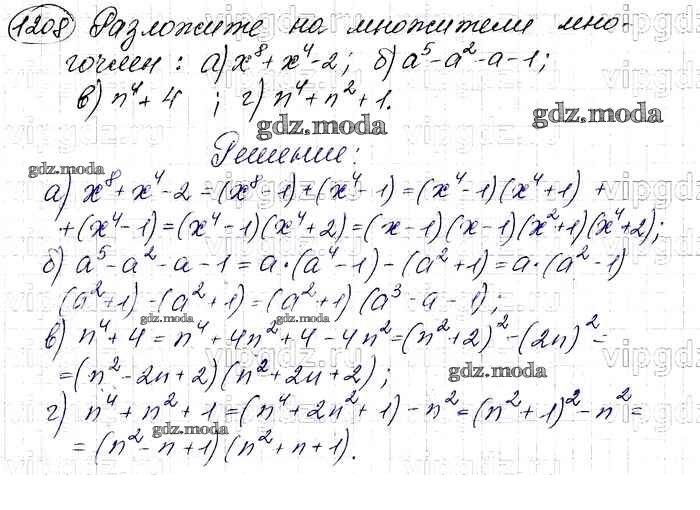 1208 Разложите на множители мно-
гочлен: а) x⁸+x⁴-2; б) a⁵-a²-a-1;
в) n⁴+4 ; г) n⁴+n²+1.
gdz.moda gdz.moda
Решение:
gdz.moda
а) x⁸+x⁴-2=(x⁸-1)+(x⁴-1)=(x⁴-1)(x⁴+1) +
+(x⁴-1)=(x⁴-1)(x⁴+2)=(x-1)(x-1)(x²+1)(x⁴+2);
б) a⁵-a²-a-1=a·(a⁴-1)-(a²+1)=a·(a²-1)
(a²+1)-(a²+1)=(a²+1)(a³-a-1);
gdz.moda gdz.moda
в) n⁴+4=n⁴+4n²+4-4n²=(n²+2)²-(2n)²=
=(n²-2n+2)(n²+2n+2);
gdz.moda
г) n⁴+n²+1=(n⁴+2n²+1)-n²=(n²+1)²-n²=
gdz.moda
=(n²-n+1)(n²+n+1).